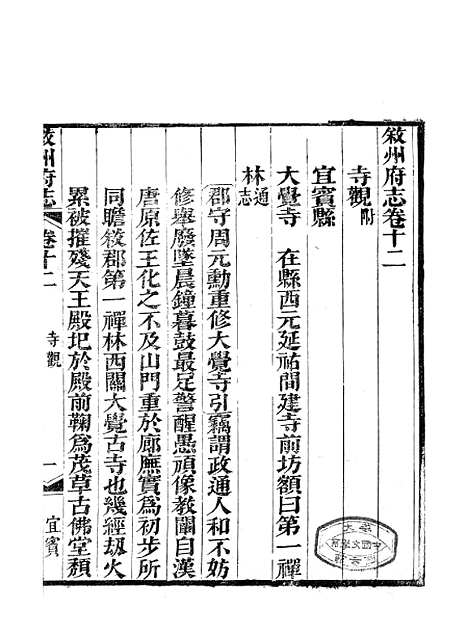 敘州府志卷十二
寺觀附
宜賓縣
大覺寺　在縣西元延祐間建寺前坊額曰第一禪
林通志
郡守周元勳重修大覺寺引竊謂政通人和不妨
修舉廢墜晨鐘暮鼓最足警醒愚頑像教闡自漢
唐原佐王化之不及山門重於廊廡實為初步所
同瞻敘郡第一禪林西關大覺古寺也幾經劫火
累被摧殘天王殿圮於殿前鞠為茂草古佛堂頹
敘州府志
卷十二
寺觀
一
宜賓